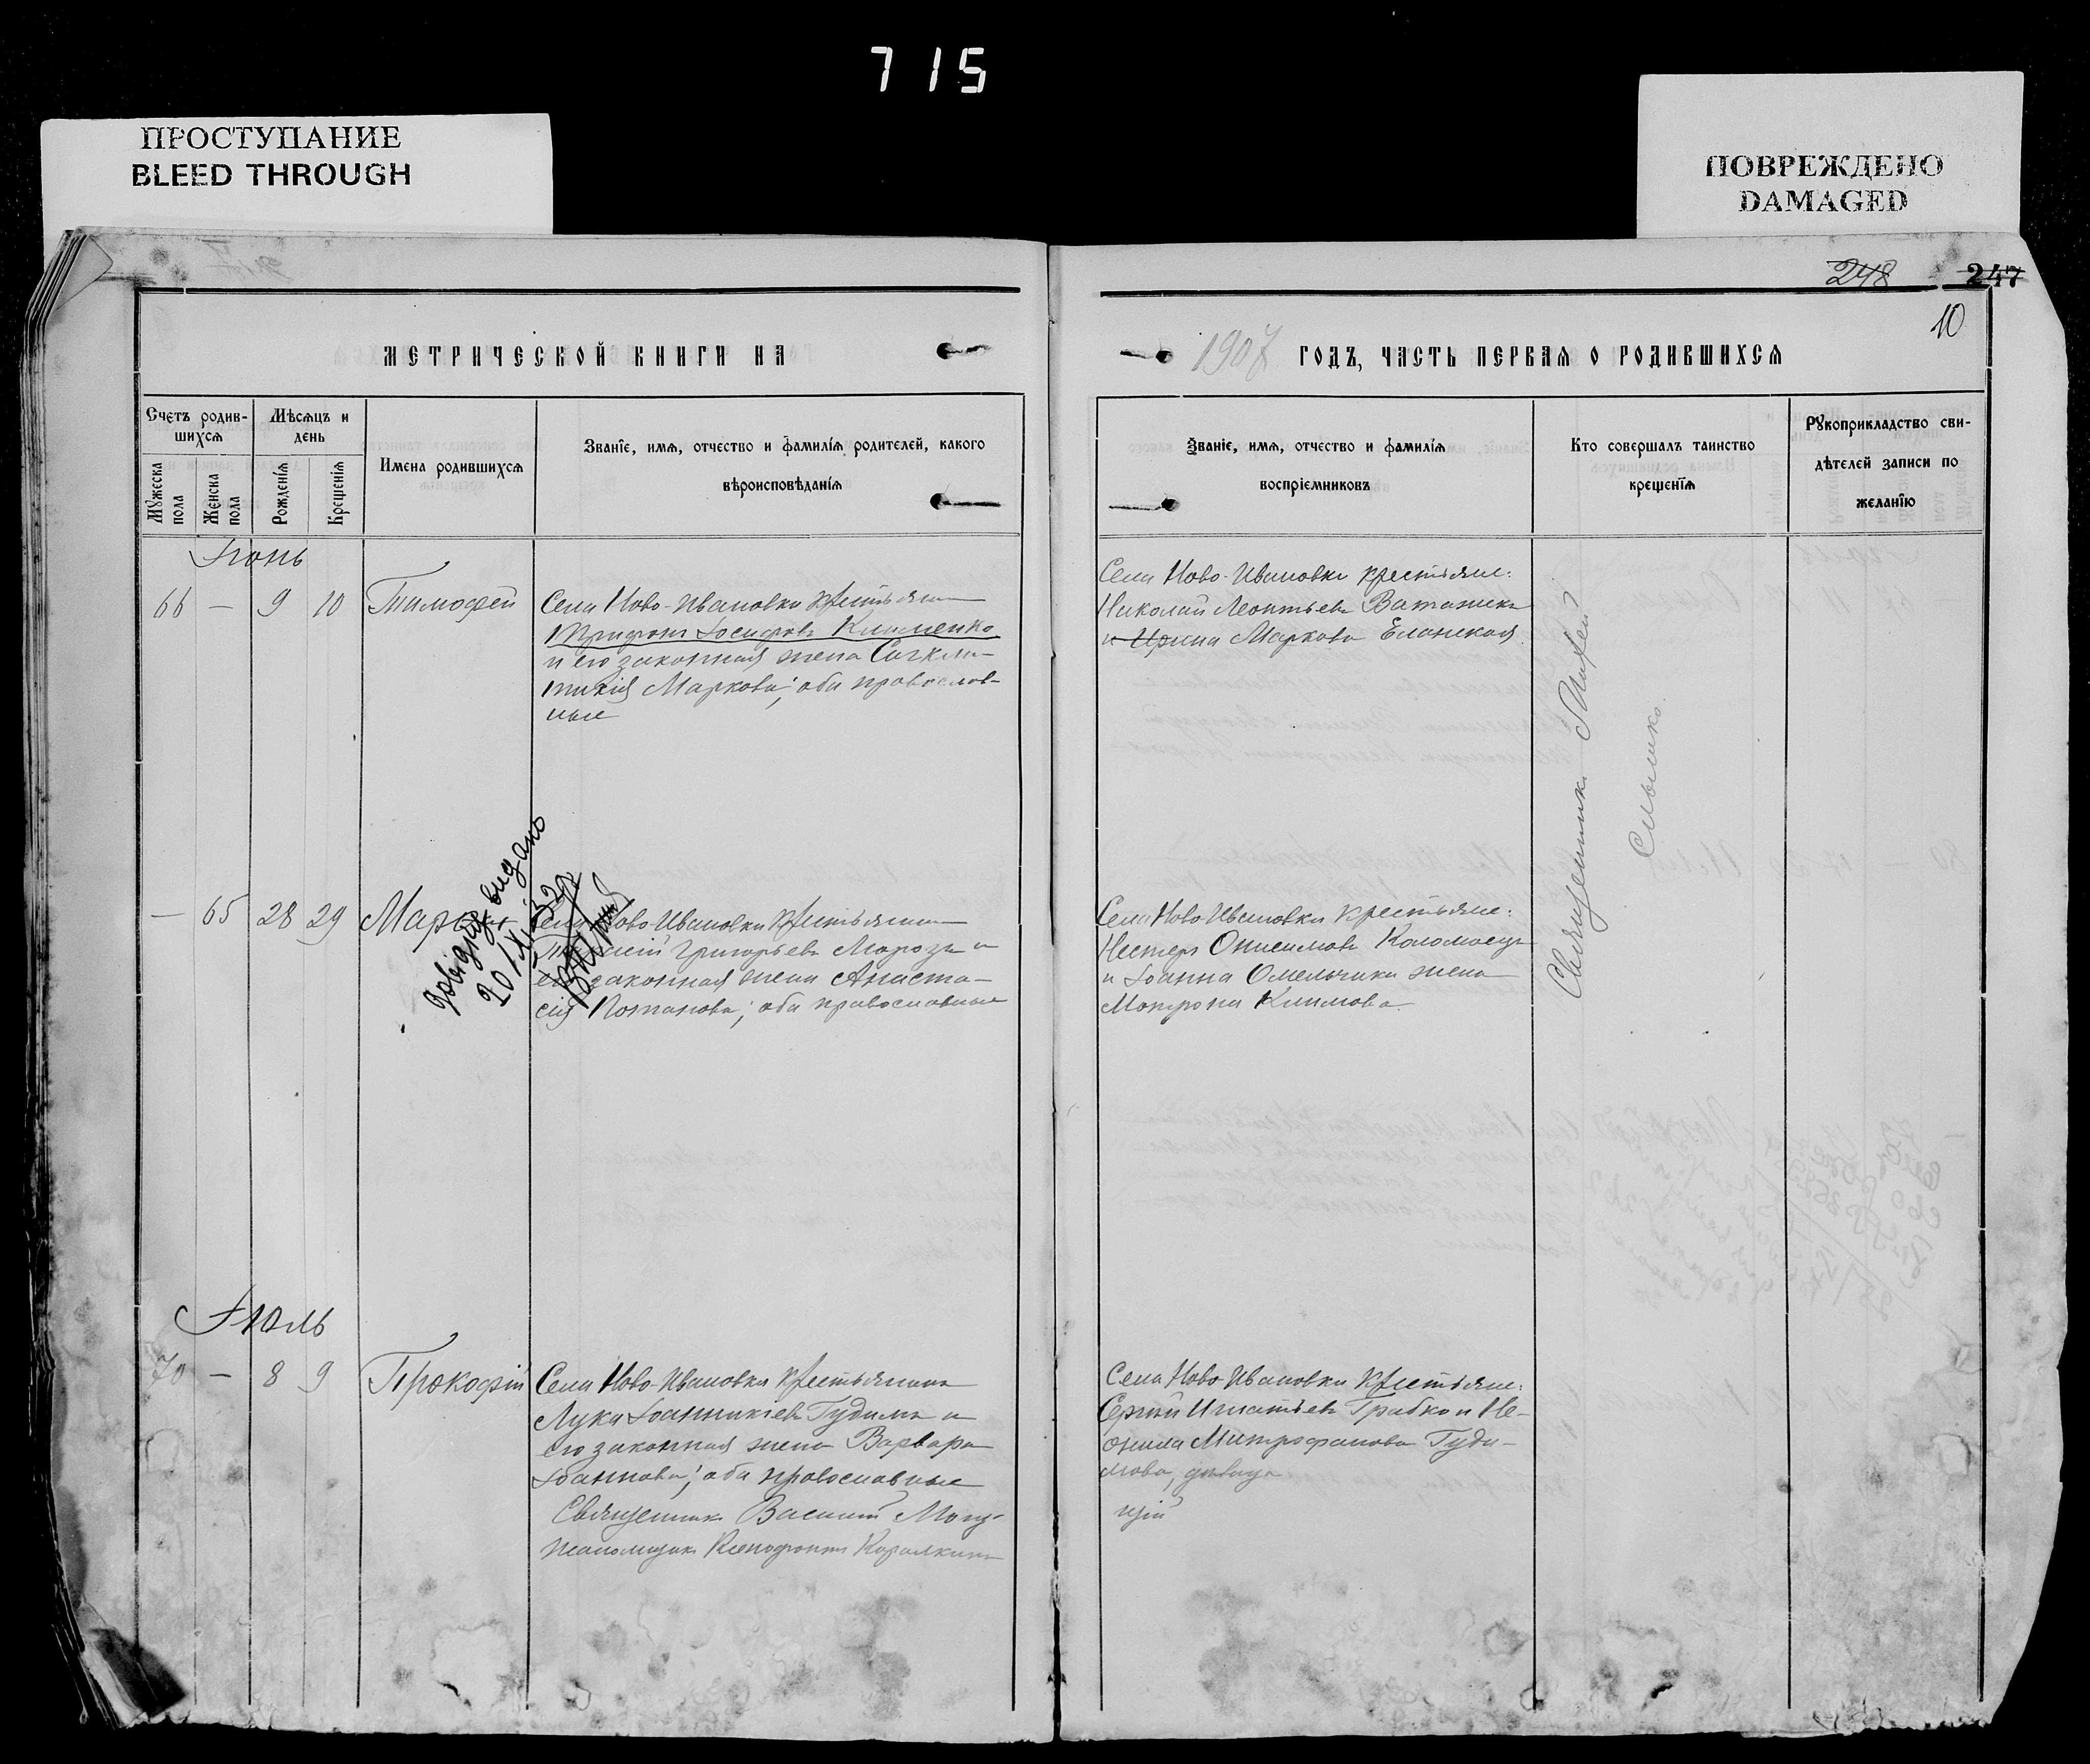 715
ПРОСТУПАНИЕ
BLEED THROUGH
ПОВРЕЖДЕНО
DAMAGED
248
247
10
МЕТРИЧЕСКОЙ КНИГИ НА
1907 ГОДЪ, ЧАСТЬ ПЕРВАЯ О РОДИВШИХСЯ
Счетъ родив-
шихся
Мужеска пола
Женска пола
Мѣсяцъ и
день
Рожденія
Крещенія
Имена родившихся
Званіе, имя, отчество и фамилія родителей, какого
вѣроисповѣданія
Званіе, имя, отчество и фамилія
воспріемниковъ
Кто совершалъ таинство
крещенія
Рукоприкладство сви-
дѣтелей записи по
желанію
Іюнь
66 — 9 10 Тимофей
Села Ново-Ивановки крестьянинъ
Трифонъ Іосифовъ Клименко
и его законная жена
Маркова; оба православ-
ные
Села Ново-Ивановки крестьяне:
Николай Леонтьевъ
и Ирина Маркова
Священникъ Михей
— 65 28 29
довідку видано
20/XI 32р
Села Ново-Ивановки крестьянинъ
Григорьевъ Морозъ и
его законная жена Анаста-
сія Потапова; оба православные
Села Ново-Ивановки крестьяне:
Нестеръ Онисимовъ Коломоецъ
и Іоанна Омельчика жена
Матрона Климова
Іюль
70 — 8 9 Прокофій
Села Ново-Ивановки крестьянинъ
Лука Іоанникіевъ Гудимъ и
его законная жена Варвара
Іоаннова; оба православные
Священникъ Василій
Псаломщикъ Ксенофонтъ
Села Ново-Ивановки крестьяне:
Сергій Игнатьевъ Грабко и Не-
онила Митрофанова Гуди-
мова, девица